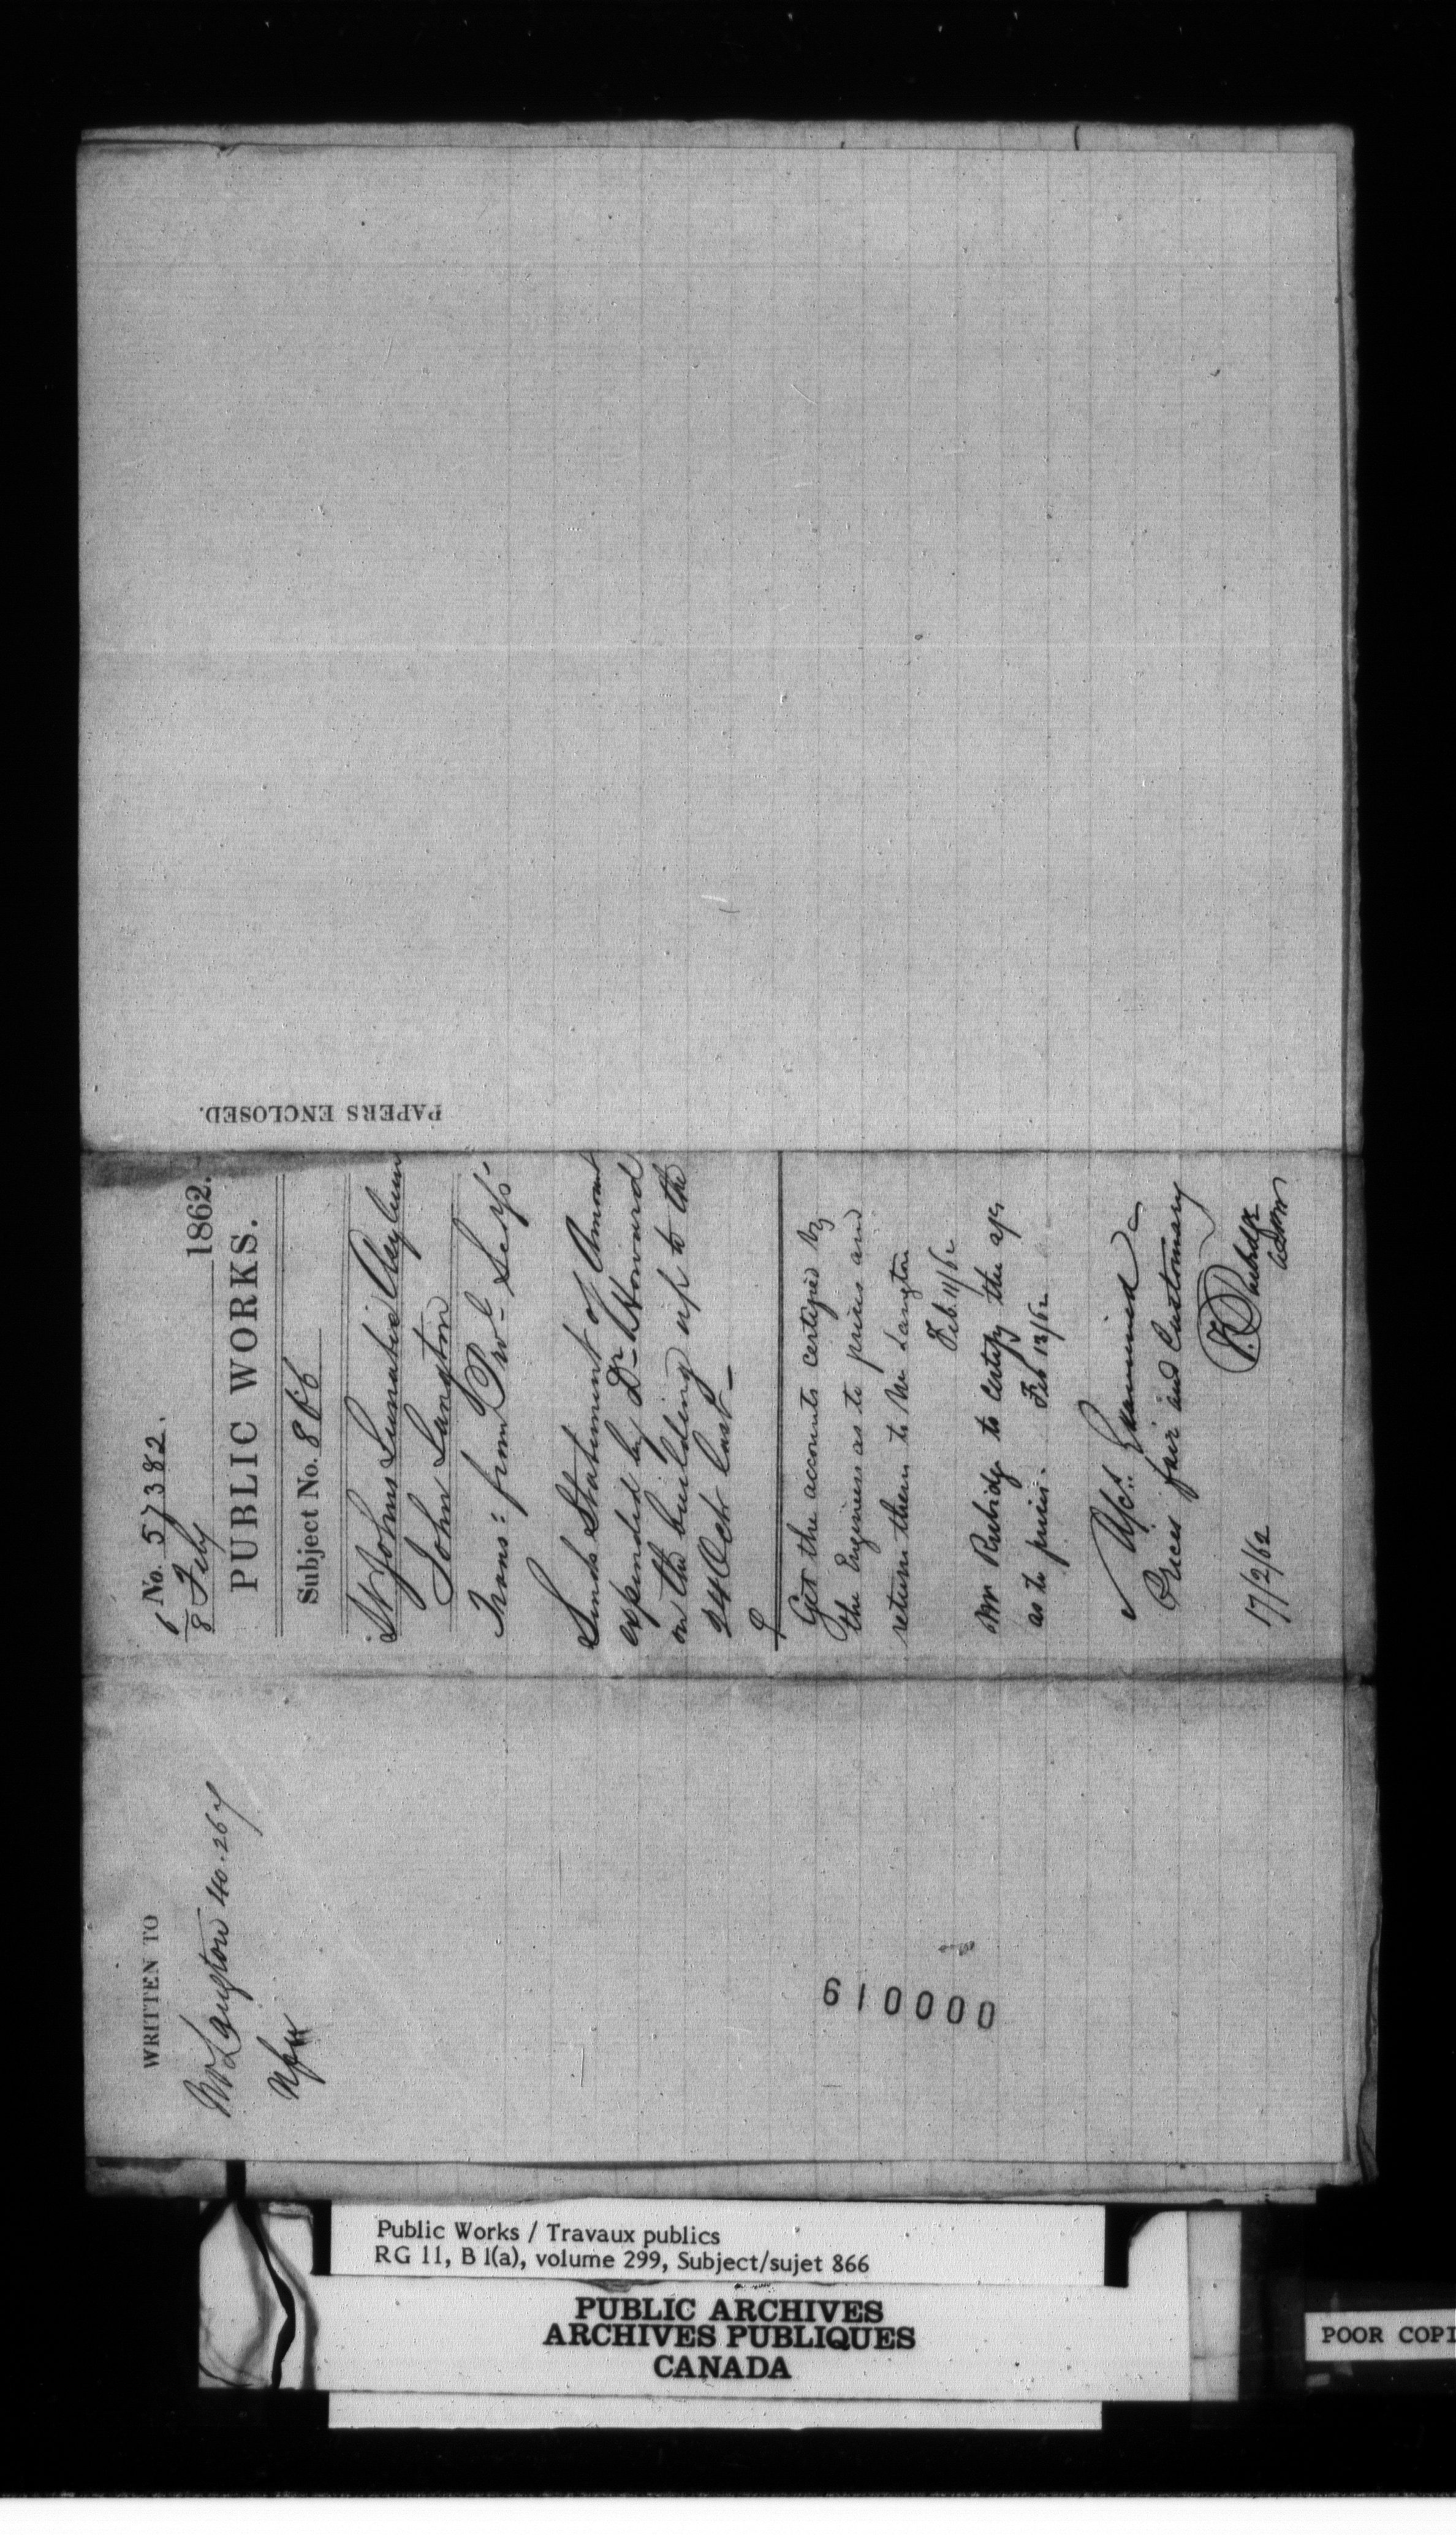 WRITTEN TO
Mr Langton 40.267
PAPERS ENCLOSED.
No. 57382.
6/8 Feby 1862.
PUBLIC WORKS.
Subject No. 866
St Johns Lunatic Asylum
John Langton
Trans: from
Sends Statement of Amount
expended by Dr Howard
on the building up to the
24 Oct last
Get the accounts certified by
the Engineer as to prices and
return them to Mr Langton
Feb. 11/62
Mr Rubidge to certify the a/cs
as to prices. Feb 13/62
A/cs. Examined
Prices fair and Customary
F. Rubidge
17/2/62
000019
Public Works / Travaux publics
RG 11, B 1(a), volume 299, Subject/sujet 866
PUBLIC ARCHIVES
ARCHIVES PUBLIQUES
CANADA
POOR COPI